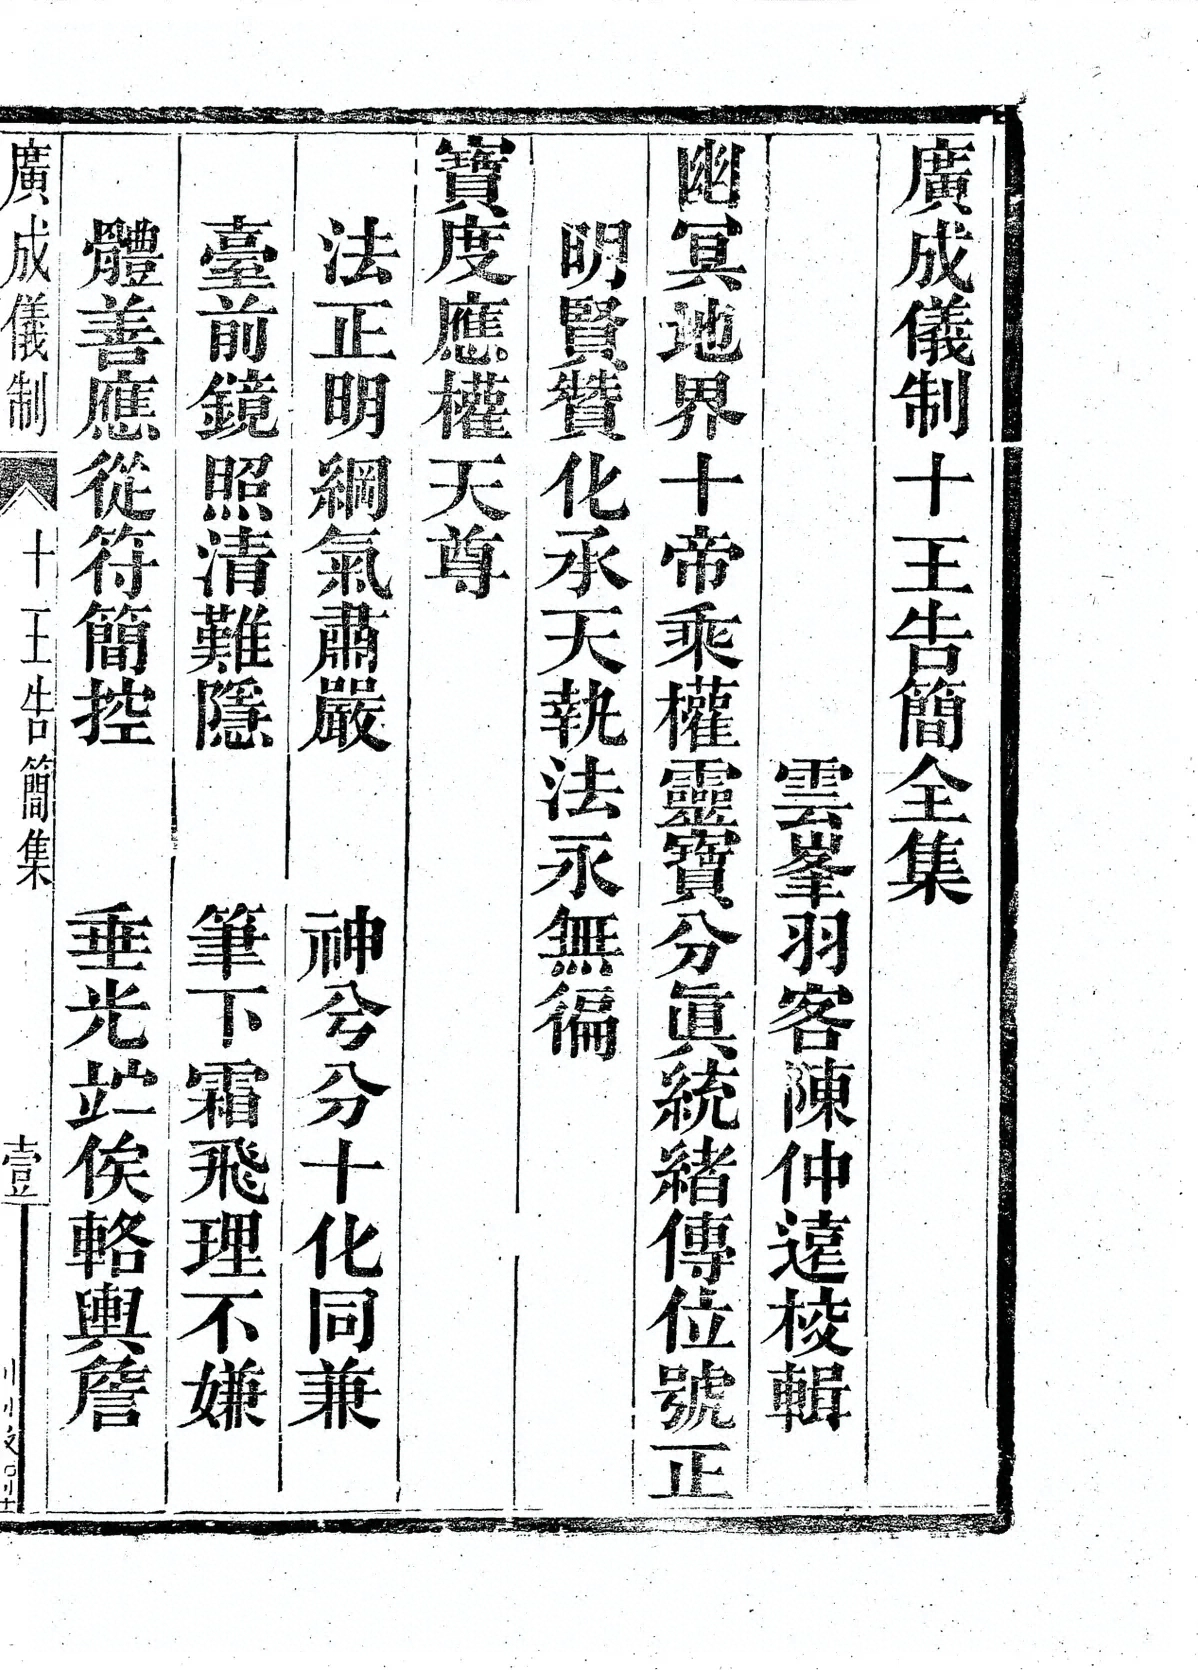 廣成儀制十王告簡全集
雲峯羽客陳仲遠校輯
幽冥地界十帝乘權靈寶分眞統緒傳位號正
明賢贊化承天執法永無徧
寶度應權天尊
法正明綱氣肅嚴　神兮分十化同兼
臺前鏡照清難隱　筆下霜飛理不嫌
體善應從符簡控　垂光竚俟輅輿詹
廣成儀制　十王告簡集　壹